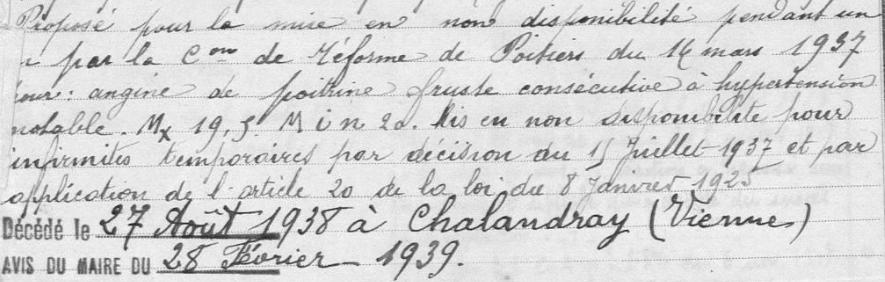 Proposé pour la mise en non disponibilité pendant un
par la Con de réforme de Poitiers du 16 mars 1937
pour : angine de poitrine fruste consécutive à hypertension
notable. Mx 19,5. Min 20. Mis en non disponibilité pour
infirmités temporaires par décision du 15 Juillet 1937 et par
application de l'article 20 de la loi du 8 Janvier 1925
Décédé le 27 Août 1938 à Chalandray (Vienne)
AVIS DU MAIRE DU 28 Février 1939.